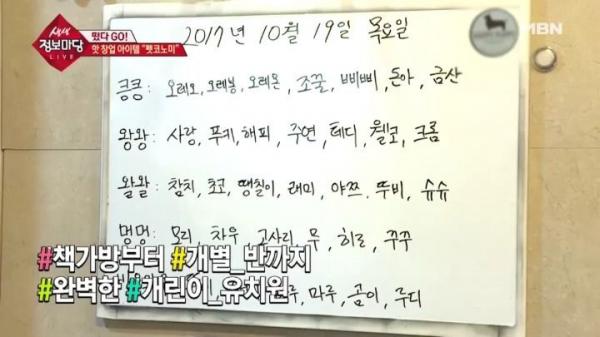 생생
정보마당
LIVE
떴다 GO!
핫 창업 아이템 "펫코노미"
MBN
2017년 10월 19일 목요일
킁킁: 오레오, 오레봉, 오레온, 조꿀, 삐삐, 돈아, 금산
왕왕: 사랑, 푸키, 해피, 주연, 테디, 웰코, 크롬
왈왈: 참치, 초코, 땡칠이, 래미, 야쯔, 뚜비, 슈슈
멍멍: 모리, 차우, 고사리, 무, 히로, 쭈쭈
루, 마루, 곰이, 루디
#책가방부터 #개별_반까지
#완벽한 #개린이_유치원